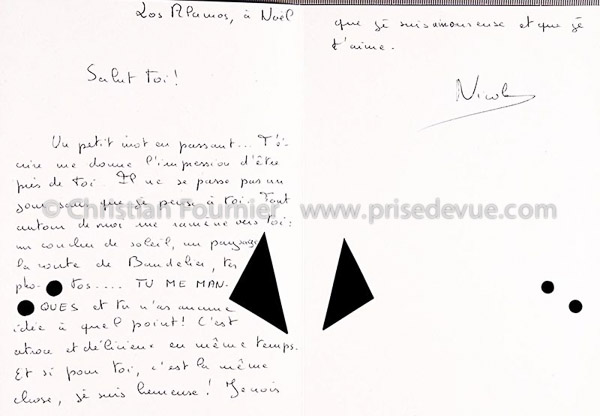 Los Alamos, à Noël
Salut toi!
Un petit mot en passant... T'é-
crire me donne l'impression d'être
près de toi. Il ne se passe pas un
jour sans que je pense à toi. Tout
autour de moi me ramène vers toi:
un coucher de soleil, un paysage
la route de Bandelier, tes
pho- tos.... TU ME MAN-
QUES et tu n'as aucune
idée à quel point! C'est
atroce et délicieux en même temps.
Et si pour toi, c'est la même
chose, je suis heureuse! Je crois
que je suis amoureuse et que je
t'aime.
Nicole
© Christian Fournier www.prisedevue.com